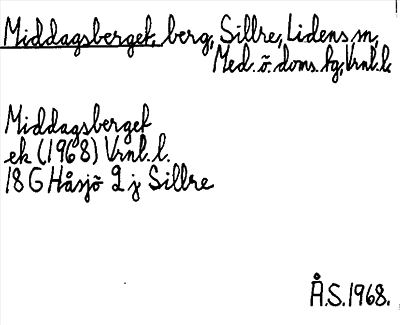 Middagsberget, berg, Sillre, Lidens sn,
Med. ö. doms. hg, Vrnl. l.
Middagsberget
ek (1968) Vrnl. l.
18 G Håsjö 2 j Sillre
Å.S. 1968.